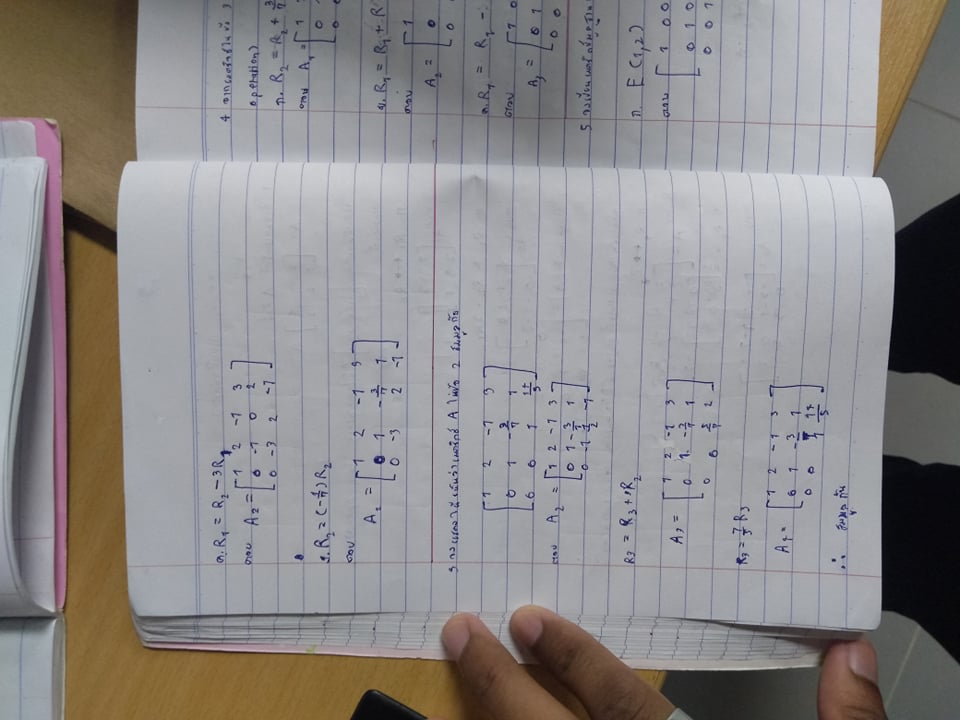 ค. R₁ = R₂ - 3R₁
ตอบ A₂ = [1 2 -1 3
0 -1 0 2
0 -3 2 -1]
R₂ = (-1/7) R₂
ตอบ A₂ = [1 2 -1 3
0 1 -3/7 1
0 -3 2 -1]
3 จงแสดงให้เห็นว่าเมตริกซ์ A ในข้อ 2 สมมูลกับ
[1 2 -1 3
0 1 -3/7 1
0 0 1 17/5]
ตอบ A₂ = [1 2 -1 3
0 1 1
0 -1]
R₃ = R₃ + R₂
A₃ = [1 2 -1 3
0 1 -3/7 1
0 0 5/7 2]
R₃ = 7/5 R₃
[1 2 -1 3
0 1 -3/7 1
0 0 1 17/5]
∴ สมมูลกัน
4 จากเมตริกซ์ในข้อ 3
operation)
ก. R₂ = R₂ + 3/7
ตอบ A₁ = [1
0
0
ข. R₁ = R₁ + R
ตอบ
A₂ = [1
0
0
ค. R₁ = R₂ -
ตอบ
A₃ = [1 0
0 1
0 0
5 จงเขียนเมตริกซ์มูลฐาน
ก. E (1,2)
ตอบ [1 0 0
0 1 0
0 0 1